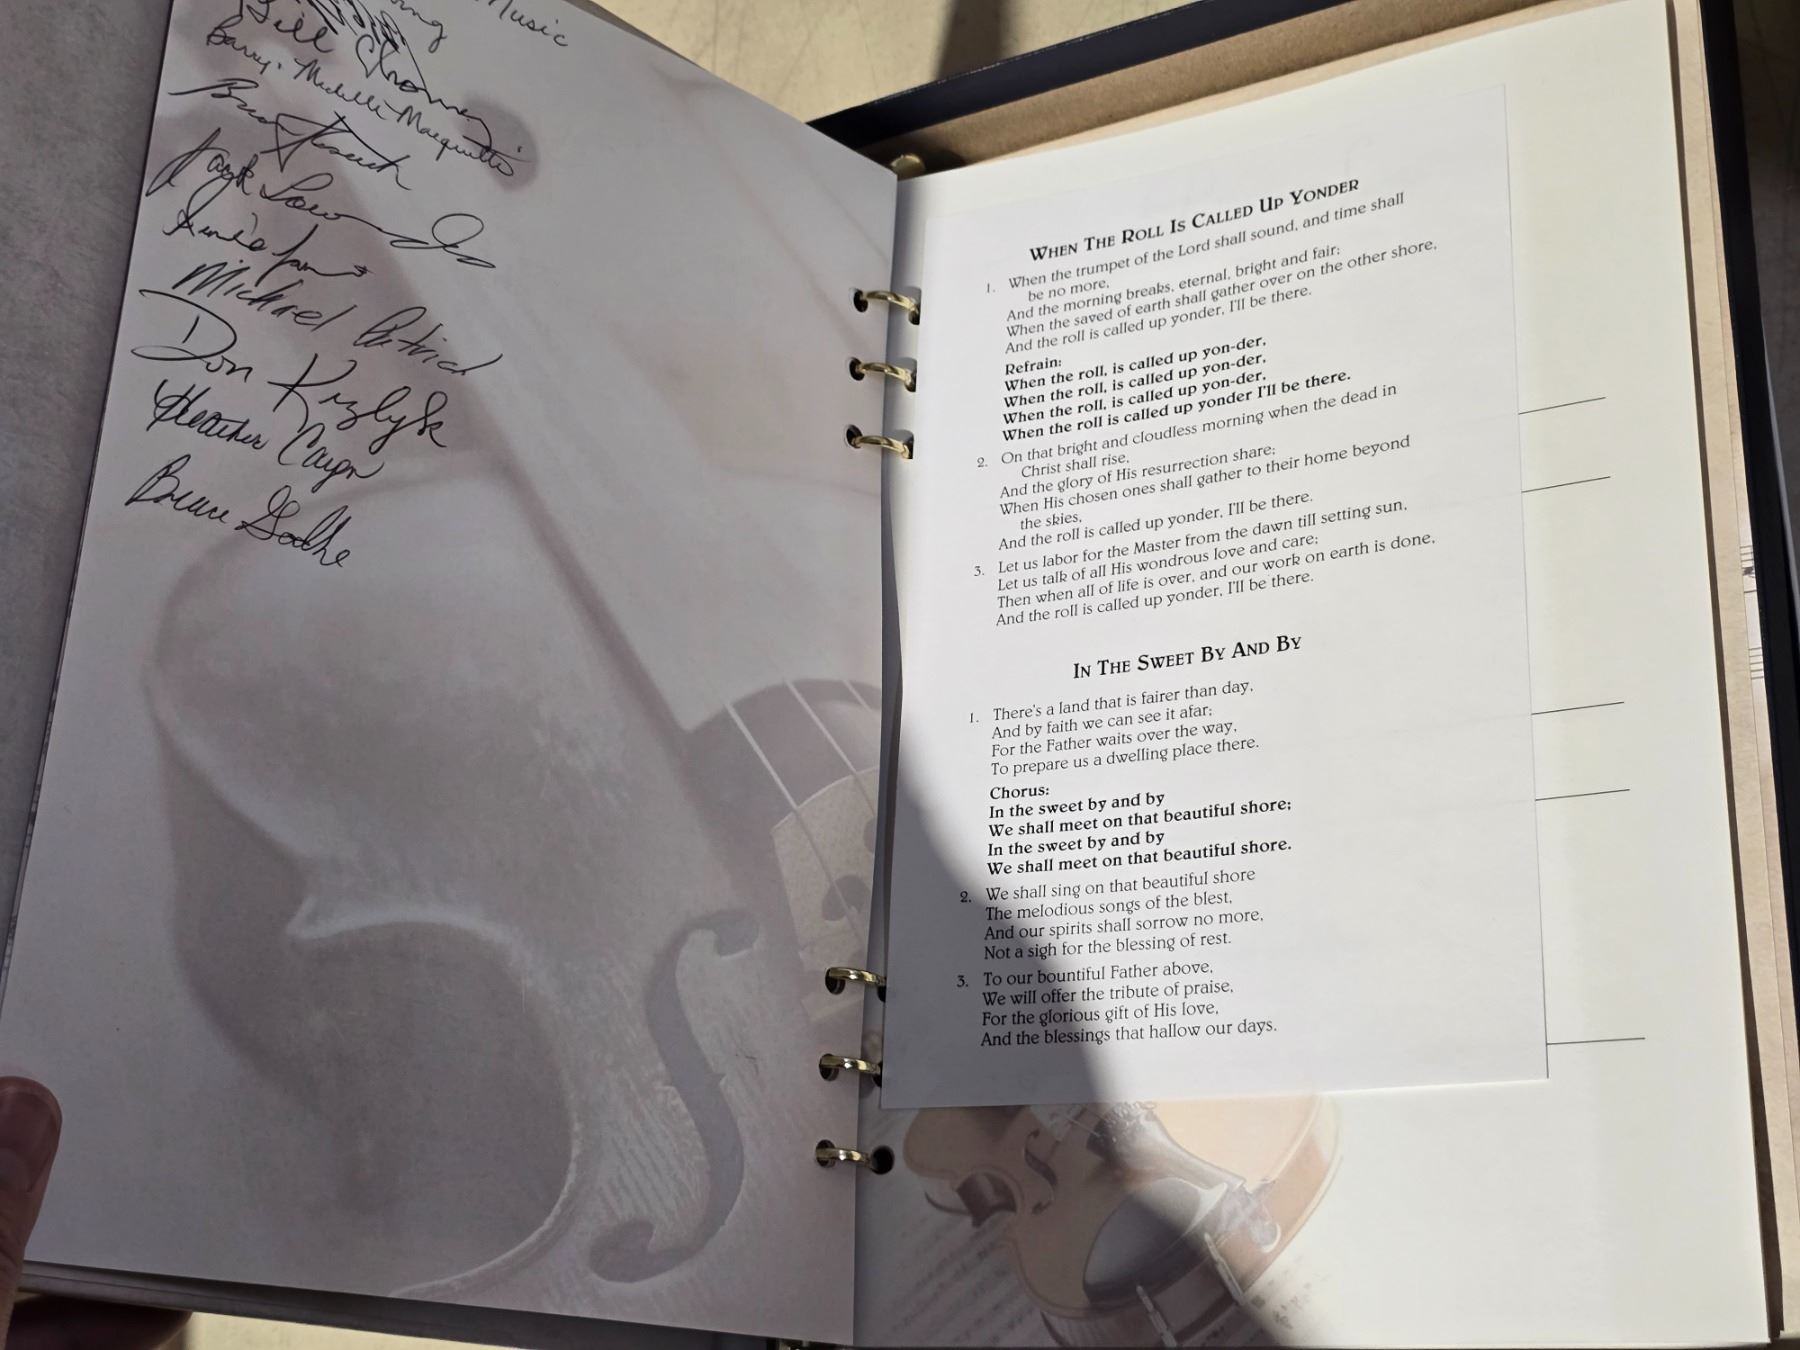 Music
Bill
Barry & Michelle Marquette
Michael Petrich
Don Kizlyk
Heather Caign
Bruce Godhe
WHEN THE ROLL IS CALLED UP YONDER
1. When the trumpet of the Lord shall sound, and time shall
be no more,
And the morning breaks, eternal, bright and fair;
When the saved of earth shall gather over on the other shore,
And the roll is called up yonder, I'll be there.
Refrain:
When the roll, is called up yon-der,
When the roll, is called up yon-der,
When the roll, is called up yon-der,
When the roll is called up yonder I'll be there.
2. On that bright and cloudless morning when the dead in
Christ shall rise,
And the glory of His resurrection share;
When His chosen ones shall gather to their home beyond
the skies,
And the roll is called up yonder, I'll be there.
3. Let us labor for the Master from the dawn till setting sun,
Let us talk of all His wondrous love and care;
Then when all of life is over, and our work on earth is done,
And the roll is called up yonder, I'll be there.
IN THE SWEET BY AND BY
1. There's a land that is fairer than day,
And by faith we can see it afar;
For the Father waits over the way,
To prepare us a dwelling place there.
Chorus:
In the sweet by and by
We shall meet on that beautiful shore;
In the sweet by and by
We shall meet on that beautiful shore.
2. We shall sing on that beautiful shore
The melodious songs of the blest,
And our spirits shall sorrow no more,
Not a sigh for the blessing of rest.
3. To our bountiful Father above,
We will offer the tribute of praise,
For the glorious gift of His love,
And the blessings that hallow our days.